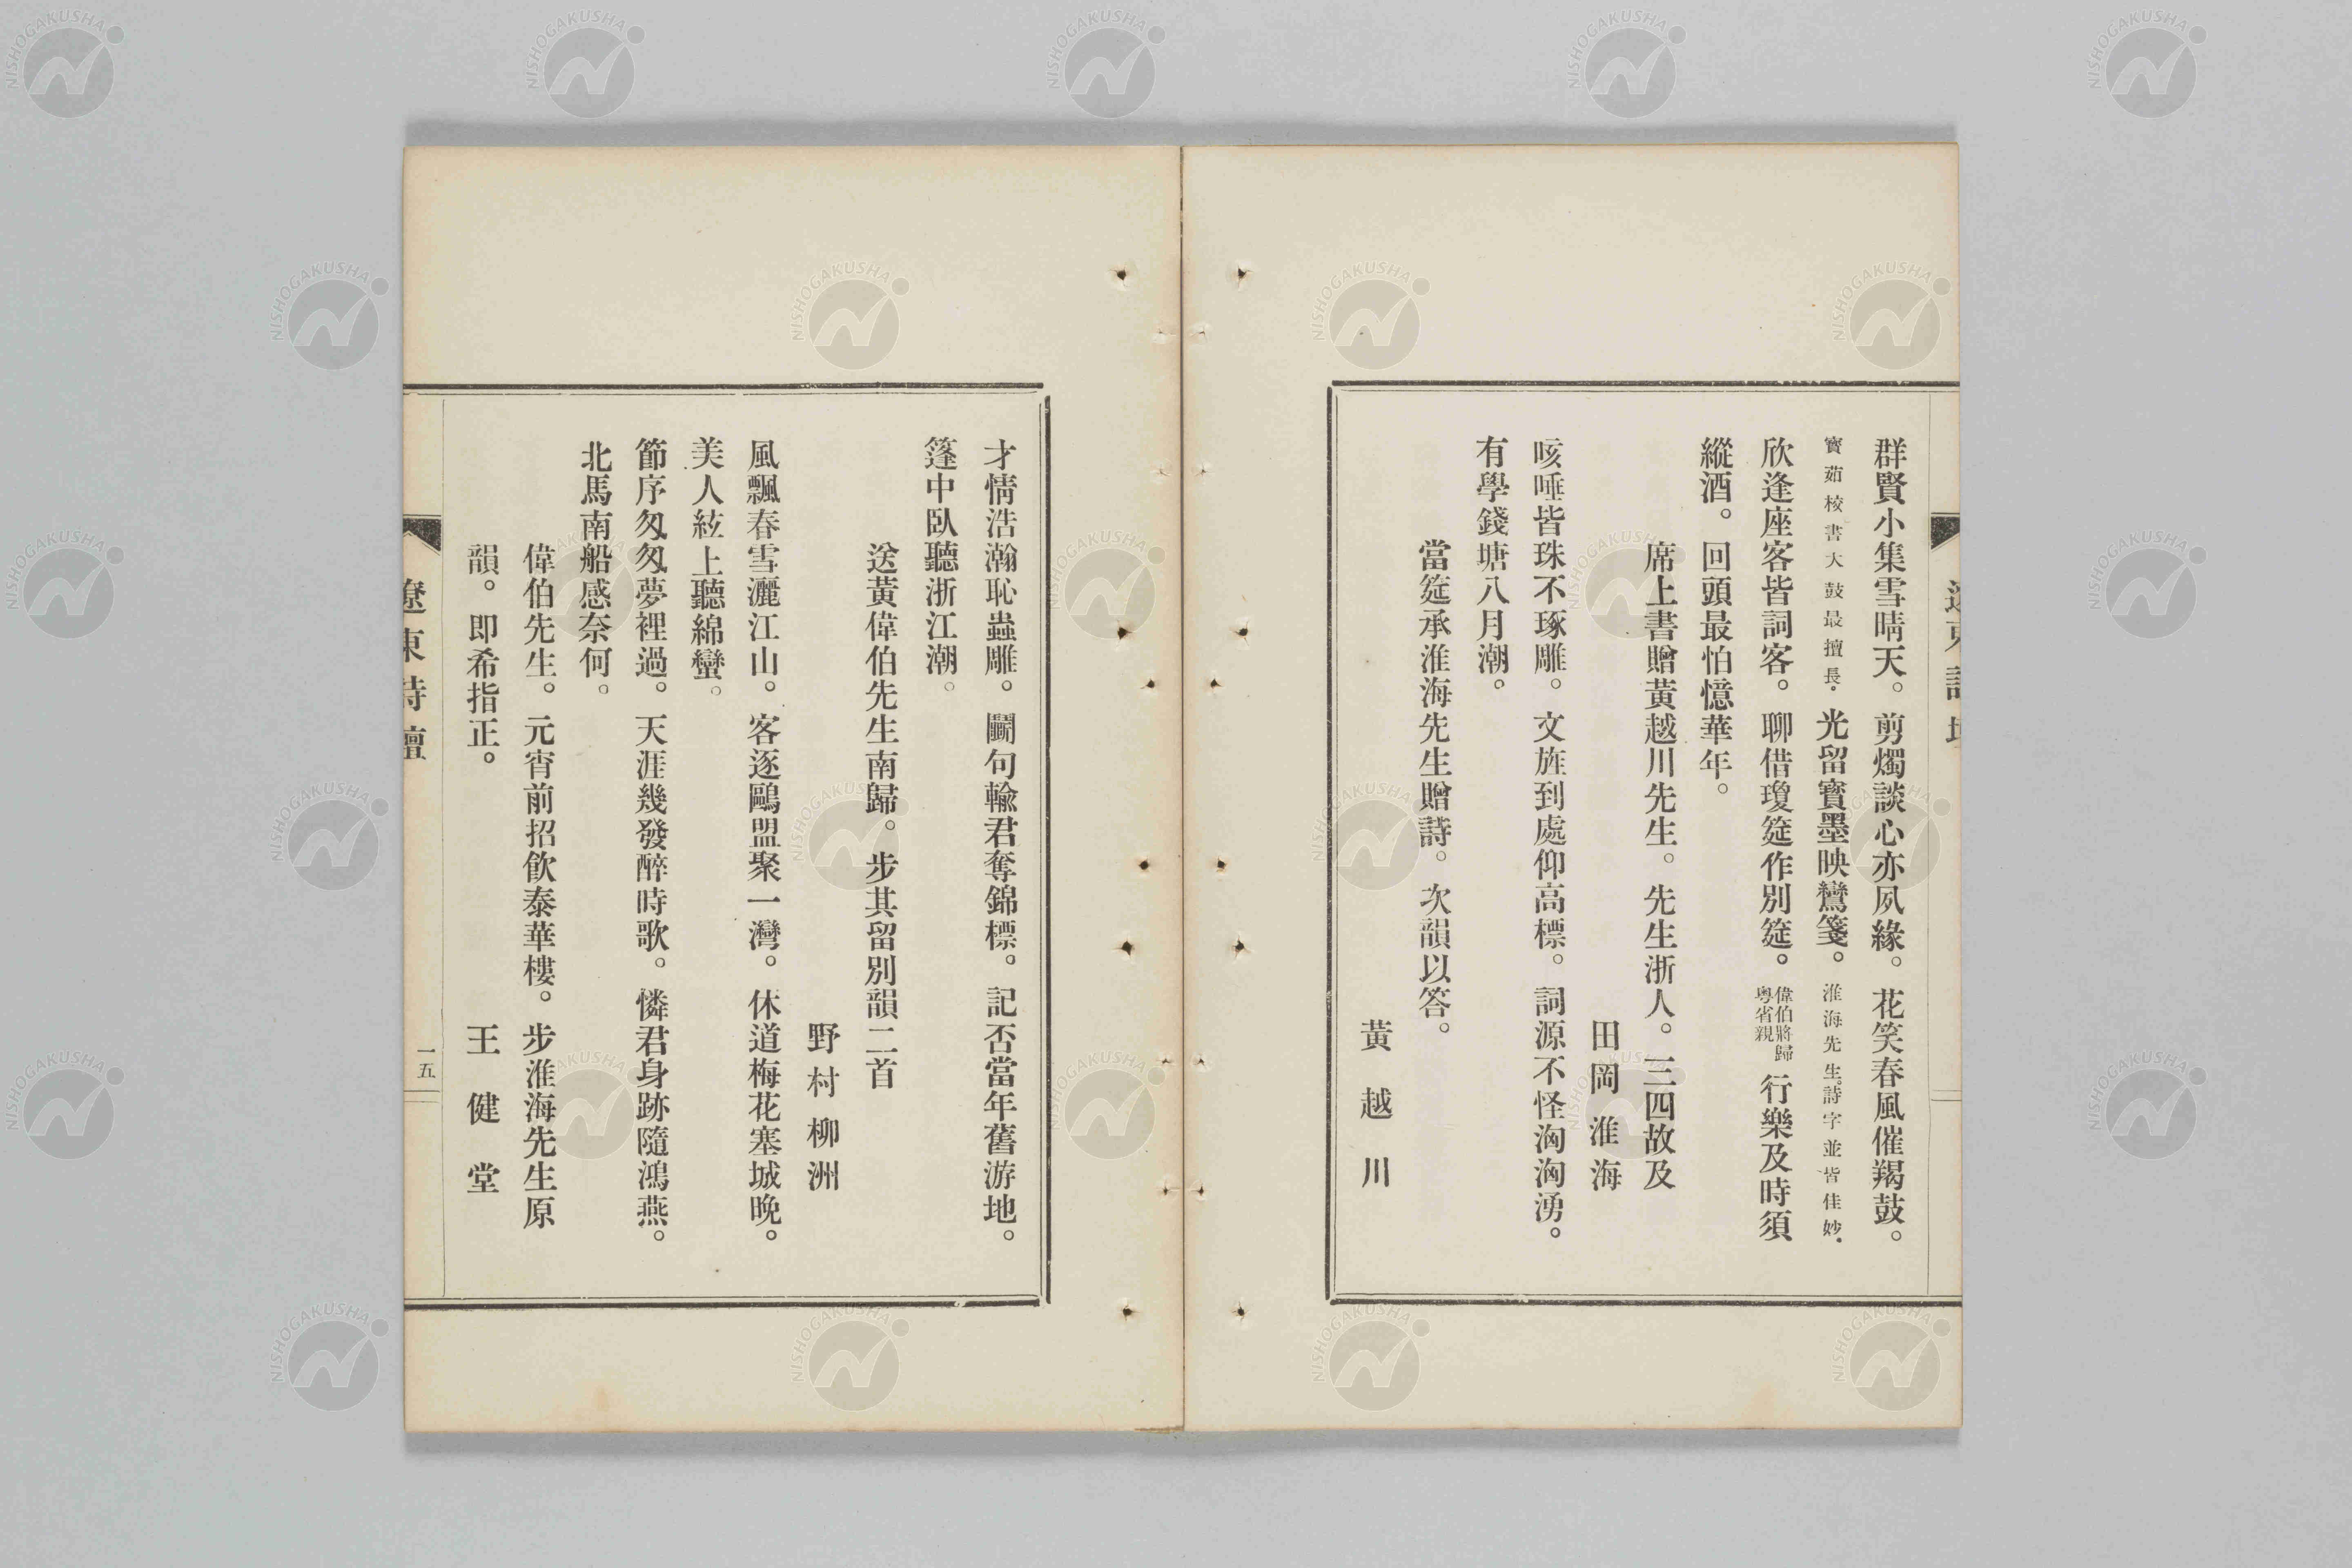 群賢小集雪晴天。剪燭談心亦夙緣。花笑春風催羯鼓。
寶茹校書大鼓最擅長。光留寶墨映鸞箋。淮海先生。詩字並皆佳妙。
欣逢座客皆詞客。聊借瓊筵作別筵。偉伯將歸粵省親行樂及時須
縱酒。回頭最怕憶華年。
席上書贈黃越川先生。先生浙人。三四故及
田岡淮海
咳唾皆珠不琢雕。文旌到處仰高標。詞源不怪洶洶湧。
有學錢塘八月潮。
當筵承淮海先生贈詩。次韻以答。
黃越川
才情浩瀚恥蟲雕。鬭句輸君奪錦標。記否當年舊游地。
篷中臥聽浙江潮。
送黃偉伯先生南歸。步其留別韻二首
野村柳洲
風飄春雪灑江山。客逐鷗盟聚一灣。休道梅花塞城晚。
美人絃上聽綿蠻。
節序匆匆夢裡過。天涯幾發醉時歌。憐君身跡隨鴻燕。
北馬南船感奈何。
偉伯先生。元宵前招飲泰華樓。步淮海先生原
韻。即希指正。
王健堂
遼東詩壇
一五
NISHOGAKUSHA